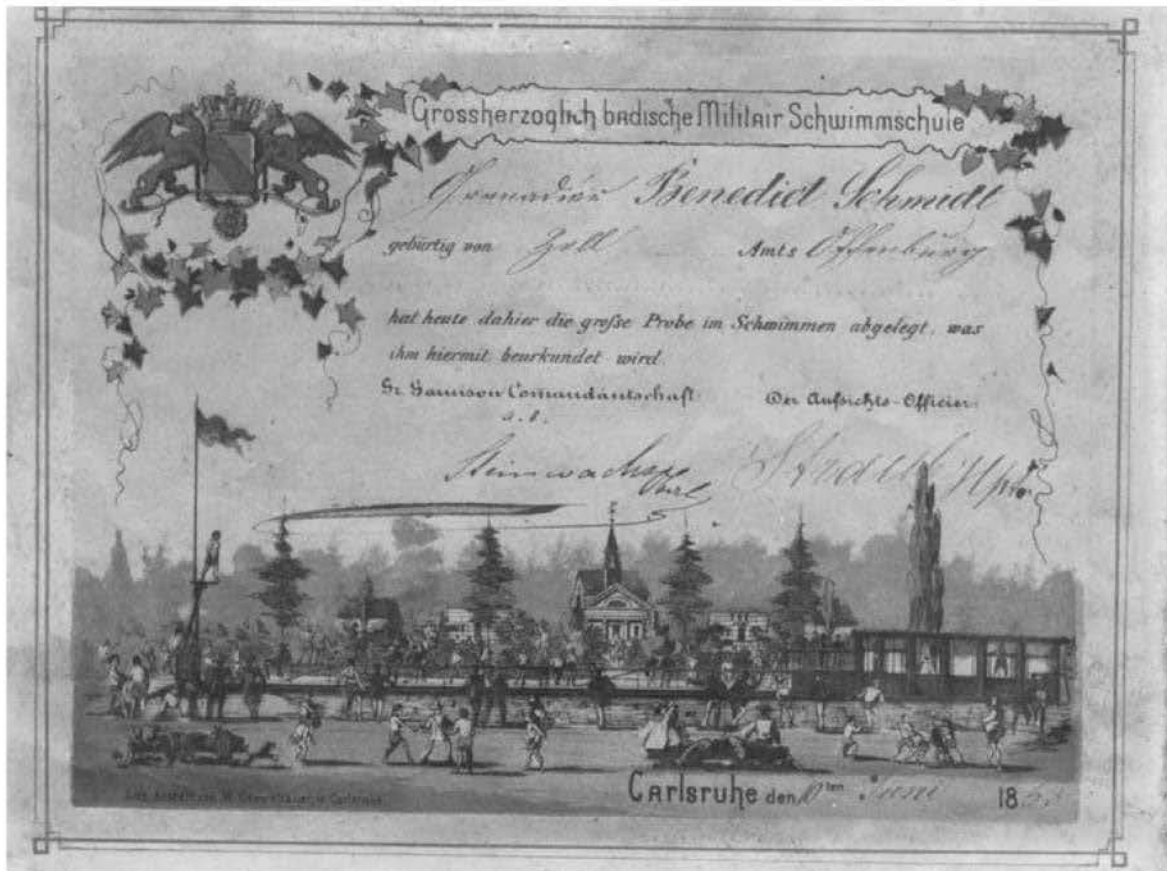 Grossherzoglich badische Militair Schwimmschule
Grenadier Benedict Schmidt
gebürtig von Zell Amts Offenburg
hat heute dahier die große Probe im Schwimmen abgelegt, was
ihm hiermit beurkundet wird.
Gr. Garnison Comandantschaft. Der Aufsichts-Officier:
Carlsruhe den 10ten Juni 18